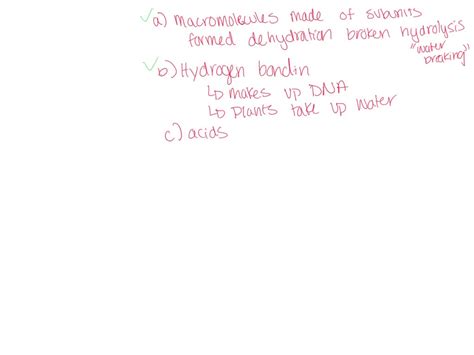 ✓ a) macromolecules made of subunits
formed dehydration broken hydrolysis
"water
breaking"
✓ b) Hydrogen bondin
↳ makes up DNA
↳ Plants take up water
c) acids